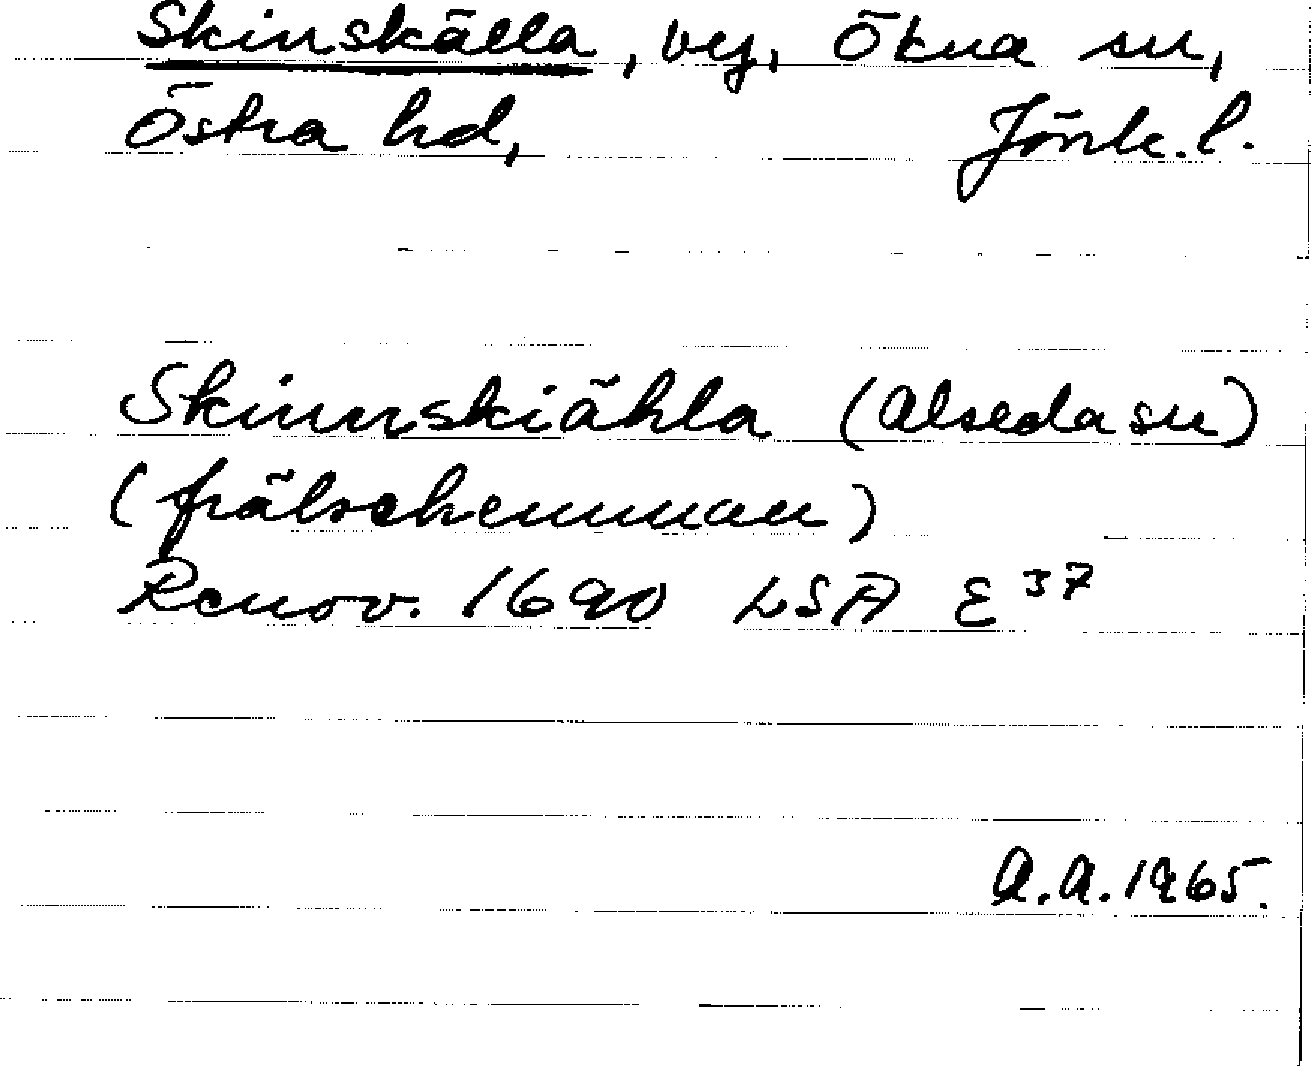 Skinskälla, by, Ökna sn,
Östra hd, Jönk. l.
Skinnskiähla (Alseda sn)
(frälsehemman)
Renov. 1690 LSA E 37
A.A. 1965.